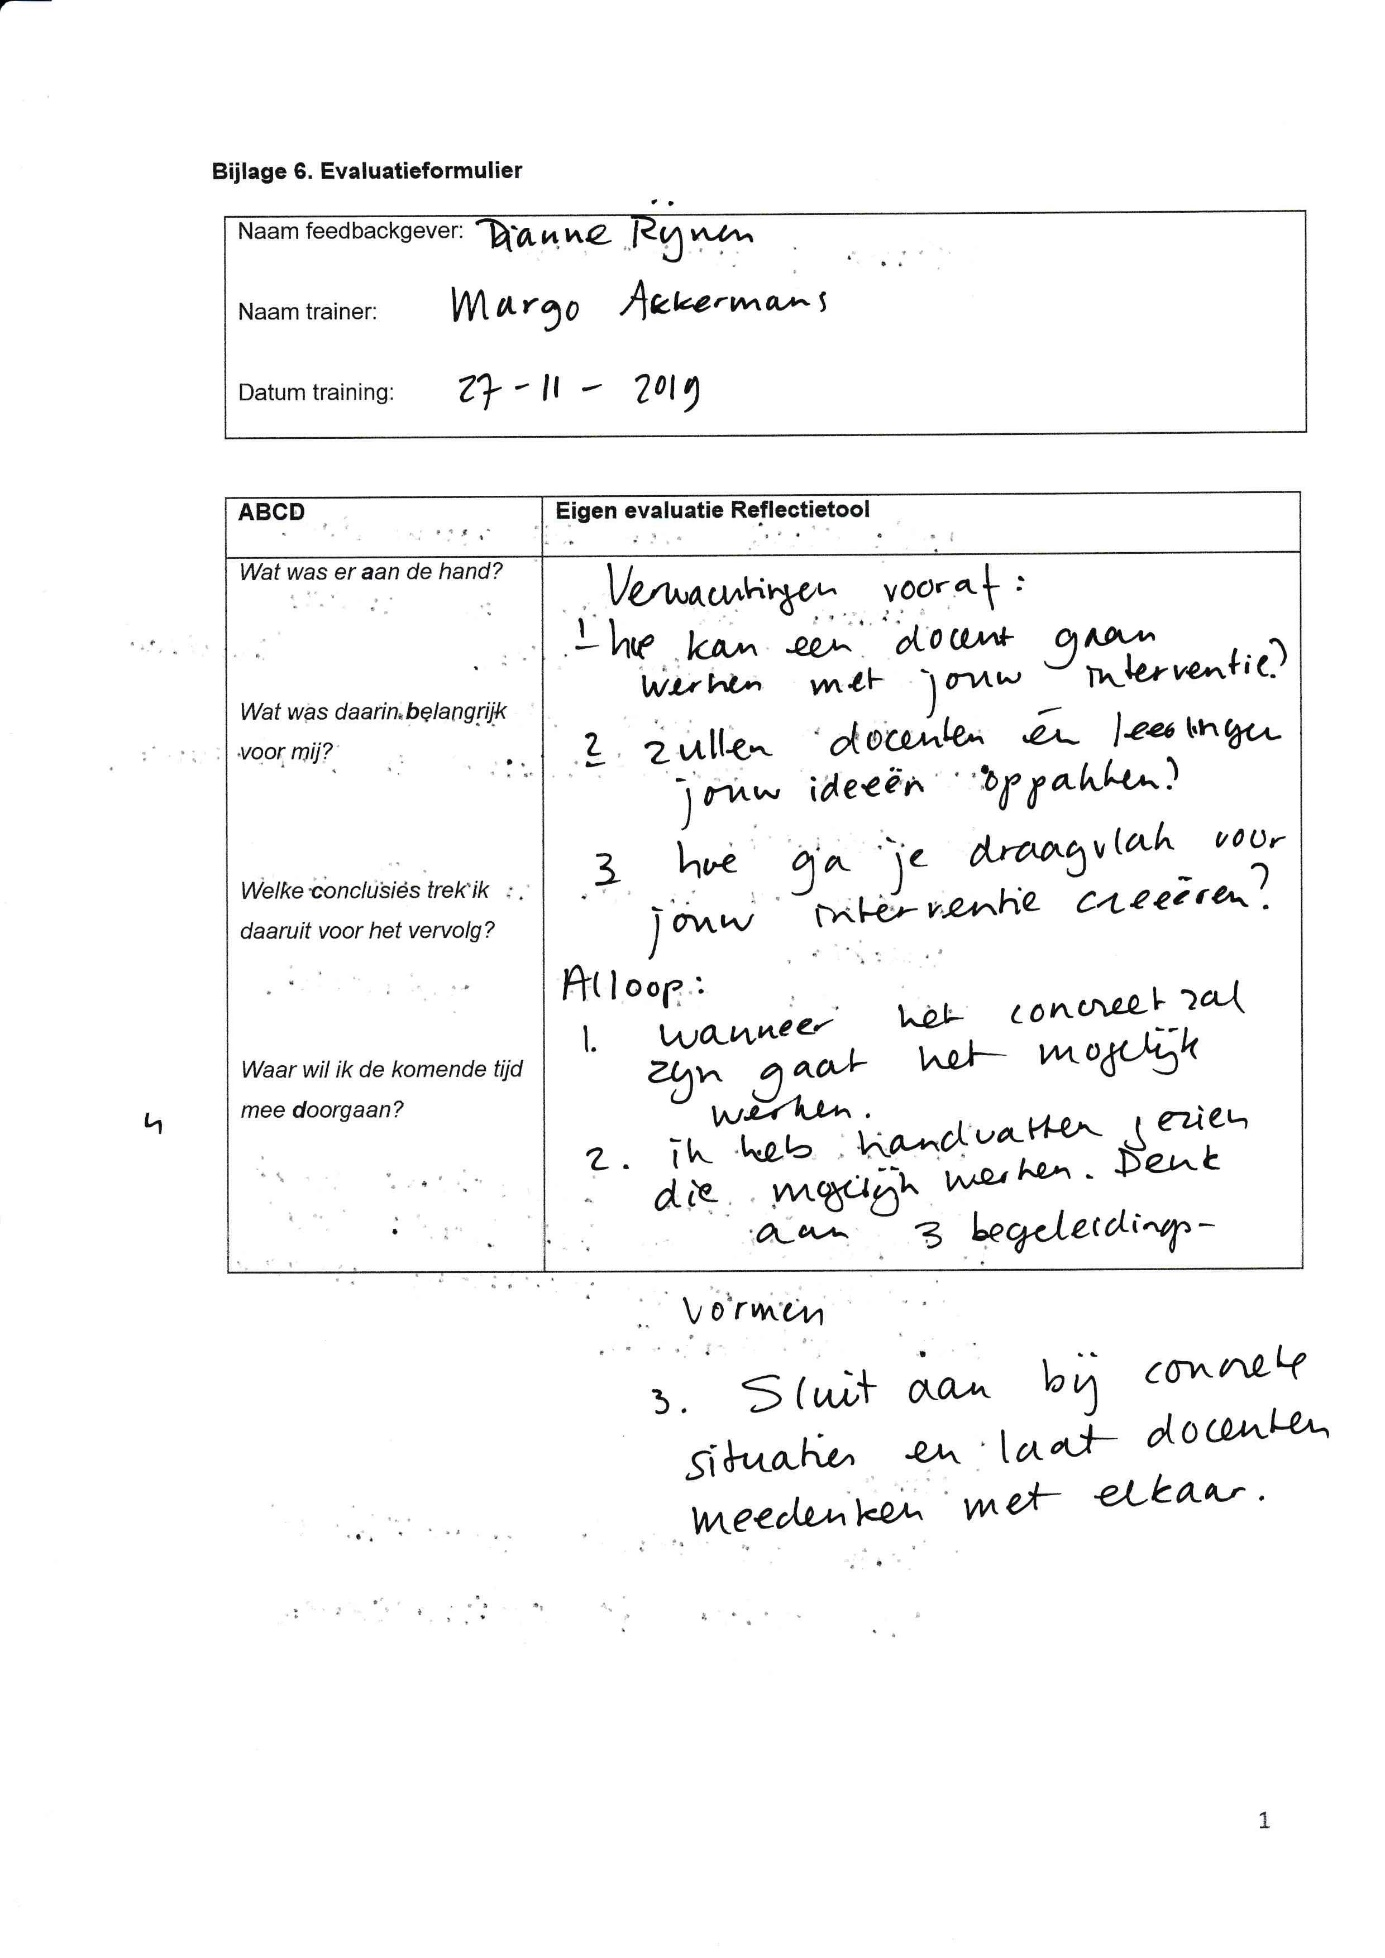 Bijlage 6. Evaluatieformulier
Naam feedbackgever: Dianne Rijnen
Naam trainer: Margo Akkermans
Datum training: 27-11-2019
ABCD
Eigen evaluatie Reflectietool
Wat was er aan de hand?
Wat was daarin belangrijk
voor mij?
Welke conclusies trek ik
daaruit voor het vervolg?
Waar wil ik de komende tijd
mee doorgaan?
Verwachtingen vooraf:
1 hoe kan een docent gaan
werken met jouw interventie?
2 zullen docenten én leerlingen
jouw ideeën oppakken?
3 hoe ga je draagvlak voor
jouw interventie creeëren?
Afloop:
1. wanneer het concreet zal
zijn gaat het mogelijk
werken.
2. ik heb handvatten gezien
die mogelijk werken. Denk
aan 3 begeleidings-
vormen
3. Sluit aan bij concrete
situaties en laat docenten
meedenken met elkaar.
1